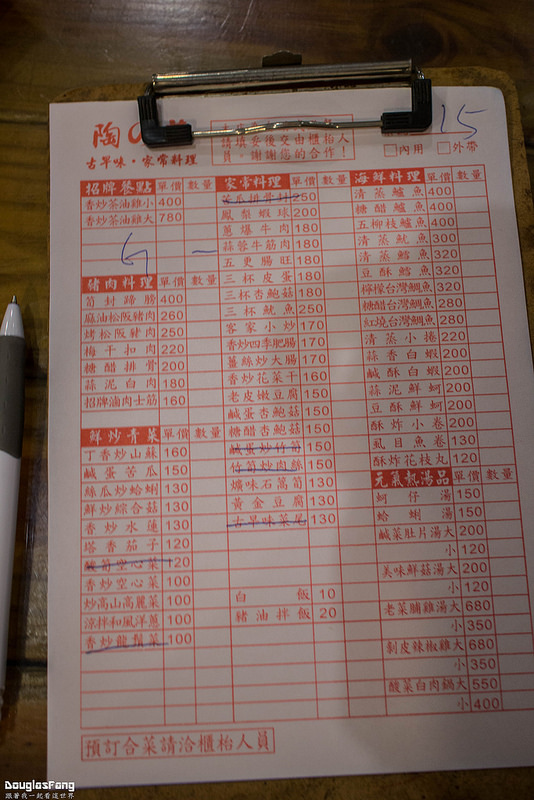 陶の
古早味・家常料理
請填妥後交由櫃枱人
員，謝謝您的合作！
15
□內用 □外帶
招牌餐點 單價 數量
香炒茶油雞小 400
香炒茶油雞大 780
豬肉料理 單價 數量
筍封蹄膀 400
麻油松阪豬肉 260
烤松阪豬肉 250
梅干扣肉 220
糖醋排骨 200
蒜泥白肉 180
招牌滷肉士筋 160
鮮炒青菜 單價 數量
丁香炒山蘇 160
鹹蛋苦瓜 150
絲瓜炒蛤蜊 130
鮮炒綜合菇 130
香炒水蓮 130
塔香茄子 120
酸筍空心菜 120
香炒空心菜 100
炒高山高麗菜 100
涼拌和風洋蔥 100
香炒龍鬚菜 100
家常料理 單價 數量
苦瓜排骨封 250
鳳梨蝦球 200
蔥爆牛肉 180
蒜蓉牛筋肉 180
五更腸旺 180
三杯皮蛋 180
三杯杏鮑菇 180
三杯魷魚 250
客家小炒 170
香炒四季肥腸 170
薑絲炒大腸 170
香炒花菜干 160
老皮嫩豆腐 150
鹹蛋杏鮑菇 150
糖醋杏鮑菇 150
鹹蛋炒竹筍 150
竹筍炒肉絲 150
爌味石蓮筍 130
黃金豆腐 130
古早味菜尾 130
白飯 10
豬油拌飯 20
海鮮料理 單價 數量
清蒸鱸魚 400
糖醋鱸魚 400
五柳枝鱸魚 400
清蒸魷魚 300
清蒸鱈魚 320
豆酥鱈魚 320
檸檬台灣鯛魚 320
糖醋台灣鯛魚 280
紅燒台灣鯛魚 280
清蒸小捲 220
蒜香白蝦 200
鹹酥白蝦 200
蒜泥鮮蚵 200
豆酥鮮蚵 200
酥炸小卷 200
虱目魚卷 130
酥炸花枝丸 120
元氣熱湯品 單價 數量
蚵仔湯 150
蛤蜊湯 150
鹹菜肚片湯大 200
小 120
美味鮮菇湯大 200
小 120
老菜脯雞湯大 680
小 350
剝皮辣椒雞大 680
小 350
酸菜白肉鍋大 550
小 400
預訂合菜請洽櫃枱人員
DouglasFong
跟著我一起看這世界